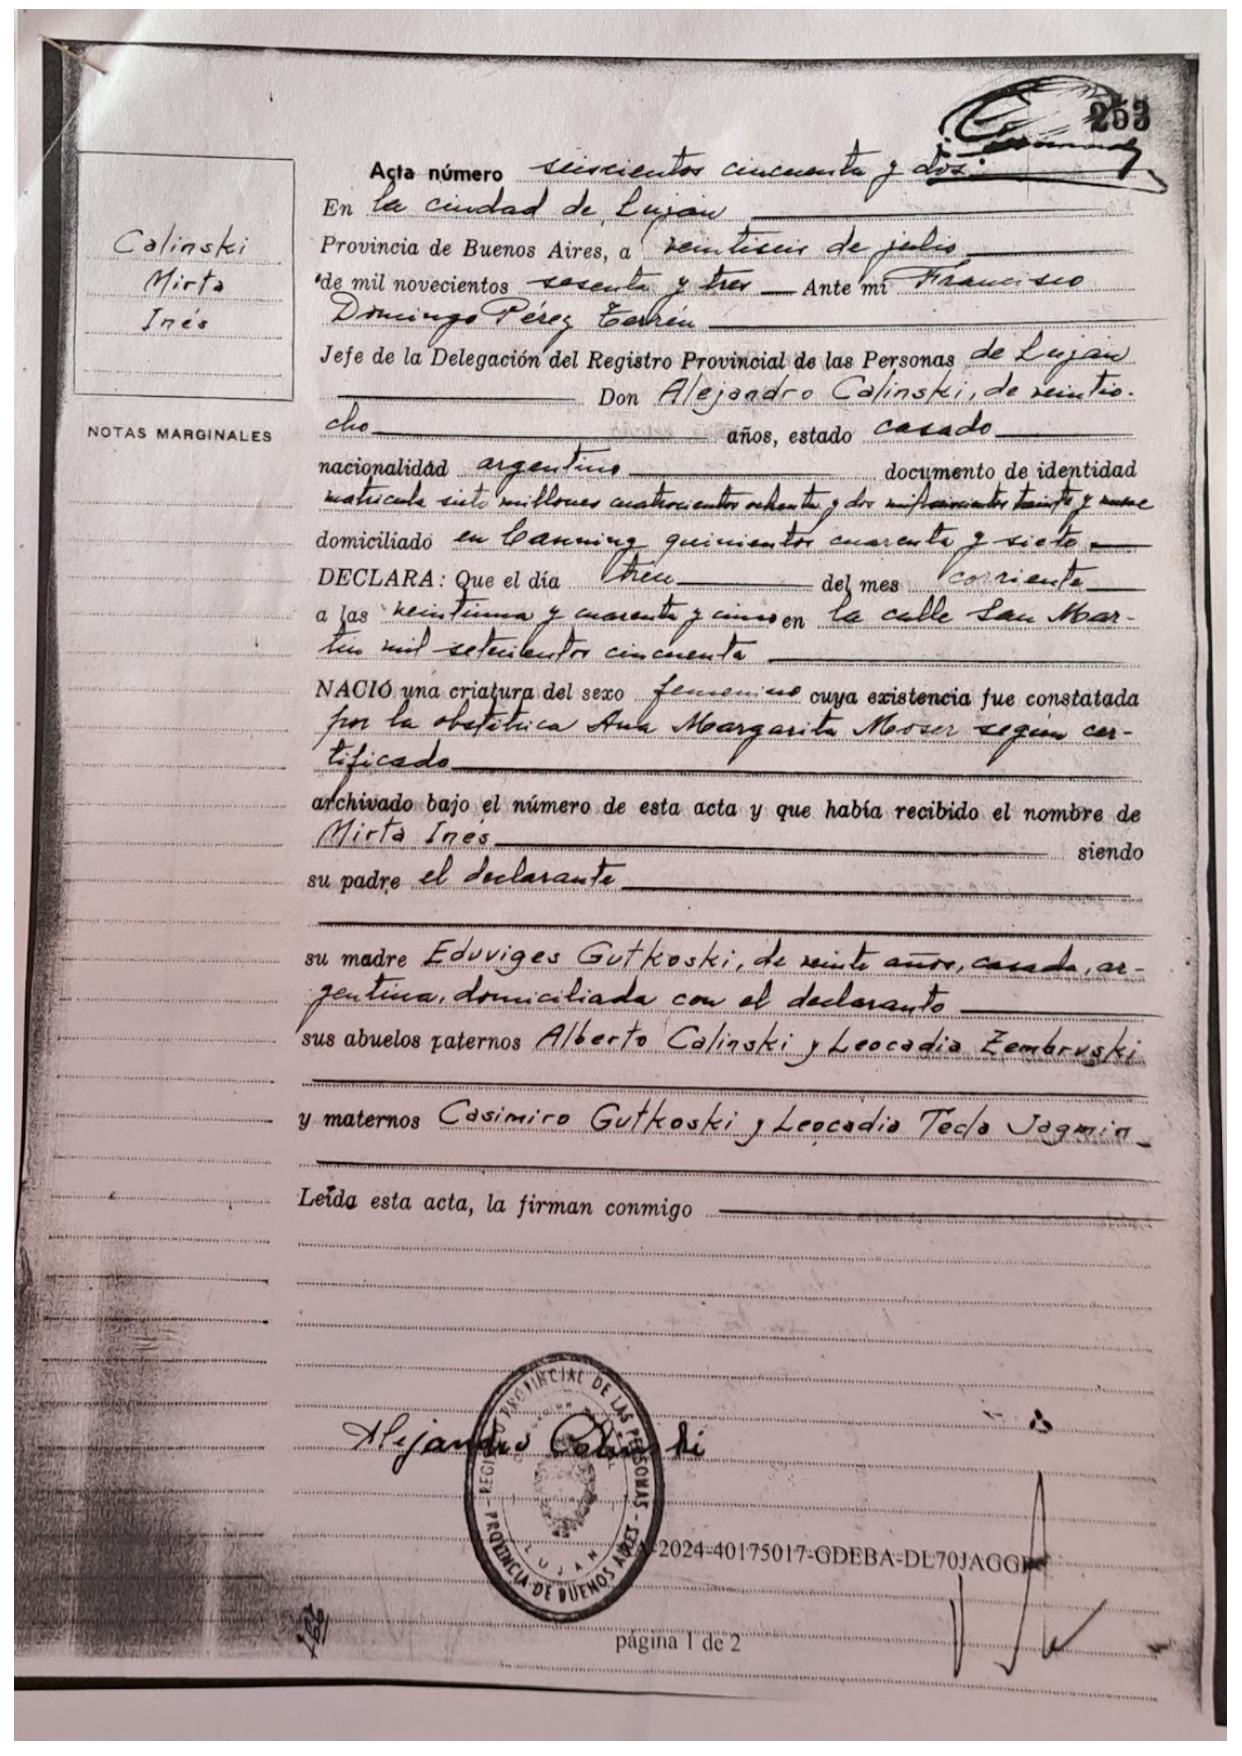 253
Acta número seiscientos cincuenta y dos
En la ciudad de Luján
Provincia de Buenos Aires, a veintiseis de julio
de mil novecientos sesenta y tres Ante mi Francisco
Domingo Pérez
Jefe de la Delegación del Registro Provincial de las Personas de Luján
Don Alejandro Calinski, de veintio-
cho años, estado casado
nacionalidad argentino documento de identidad
matricula siete millones cuatrocientos ochenta y dos mil y nueve
domiciliado en Canning quinientos cuarenta y siete
DECLARA: Que el día del mes corriente
a las veintiuna y cuarenta y cinco en la calle San Mar-
tin mil setecientos cincuenta
NACIÓ una criatura del sexo femenino cuya existencia fue constatada
por la obstétrica Ana Margarita Moser según cer-
tificado
archivado bajo el número de esta acta y que había recibido el nombre de
Mirta Inés siendo
su padre el declarante
su madre Eduviges Gutkoski, de veinte años, casada, ar-
gentina, domiciliada con el declarante
sus abuelos paternos Alberto Calinski y Leocadia Zembruski
y maternos Casimiro Gutkoski y Leocadia Tecla Jagmin
Leída esta acta, la firman conmigo
Calinski
Mirta
Inés
NOTAS MARGINALES
Alejandro Calinski
REGISTRO PROVINCIAL DE LAS PERSONAS - PROVINCIA DE BUENOS AIRES -
LUJAN
-2024-40175017-GDEBA-DL70JAGGP
página 1 de 2